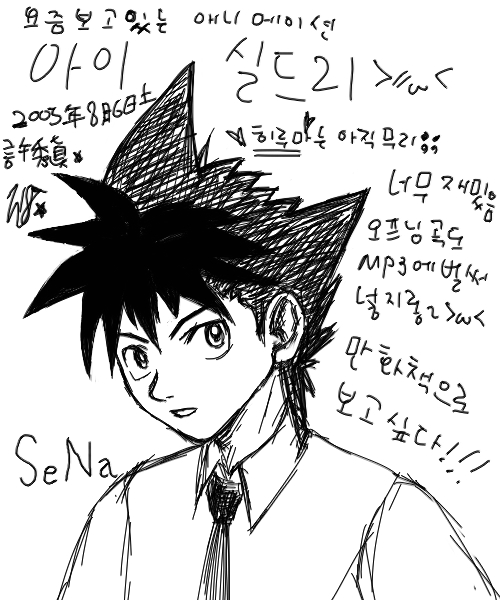 요즘 보고있는 애니메이션
아이실드21 >///ω<
2005年 8月 6日 土
히루마는 아직 무리;;
너무 재밌음
오프닝곡도
MP3에 벌써
넣지롱~>ω<
만화책으로
보고싶다!!!
SeNa